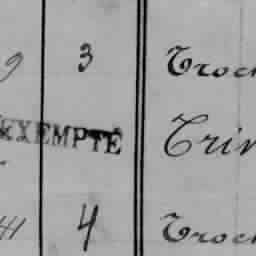 9 3 Troch
EXEMPTÉ Trin
41 4 Troch